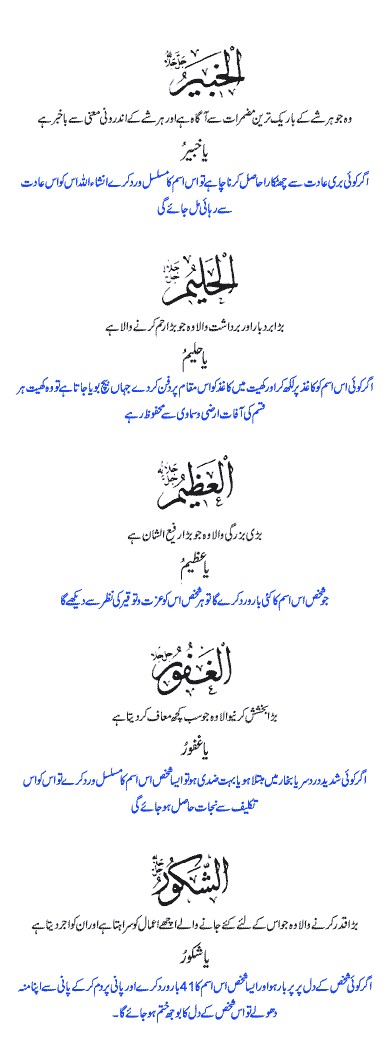 الْخَبِيرُ جل جلالہ
وہ جو ہر شے کے باریک ترین مضمرات سے آگاہ ہے اور ہر شے کے اندرونی معنی سے باخبر ہے
یا خبیرُ
اگر کوئی بری عادت سے چھٹکارا حاصل کرنا چاہے تو اس اسم کا مسلسل ورد کرے انشاء اللہ اس کو اس عادت
سے رہائی مل جائے گی
الْحَلِيمُ جل جلالہ
بڑا بردبار اور برداشت والا وہ جو بڑا رحم کرنے والا ہے
یا حلیمُ
اگر کوئی اس اسم کو کاغذ پر لکھ کر اور کھیت میں کاغذ کو اس مقام پر دفن کر دے جہاں بیج بویا جاتا ہے تو وہ کھیت ہر
قسم کی آفات ارضی و سماوی سے محفوظ رہے
الْعَظِيمُ جل جلالہ
بڑی بزرگی والا وہ جو بڑا رفیع الشان ہے
یا عظیمُ
جو شخص اس اسم کا کئی بار ورد کرے گا تو ہر شخص اس کو عزت و توقیر کی نظر سے دیکھے گا
الْغَفُورُ جل جلالہ
بڑا بخشش کرنیوالا وہ جو سب کچھ معاف کر دیتا ہے
یا غفورُ
اگر کوئی شدید درد سر یا بخار میں مبتلا ہو یا بہت ضدی ہو تو ایسا شخص اس اسم کا مسلسل ورد کرے تو اس کو اس
تکلیف سے نجات حاصل ہو جائے گی
الشَّكُورُ جل جلالہ
بڑا قدر کرنے والا وہ جو اس کے لئے کئے جانے والے اچھے اعمال کو سراہتا ہے اور ان کو اجر دیتا ہے
یا شکورُ
اگر کوئی شخص کے دل پر پر بار ہو اور ایسا شخص اس اسم کا 41 بار ورد کرے اور پانی پر دم کر کے پانی سے اپنا منہ
دھولے تو اس شخص کے دل کا بوجھ ختم ہو جائے گا۔